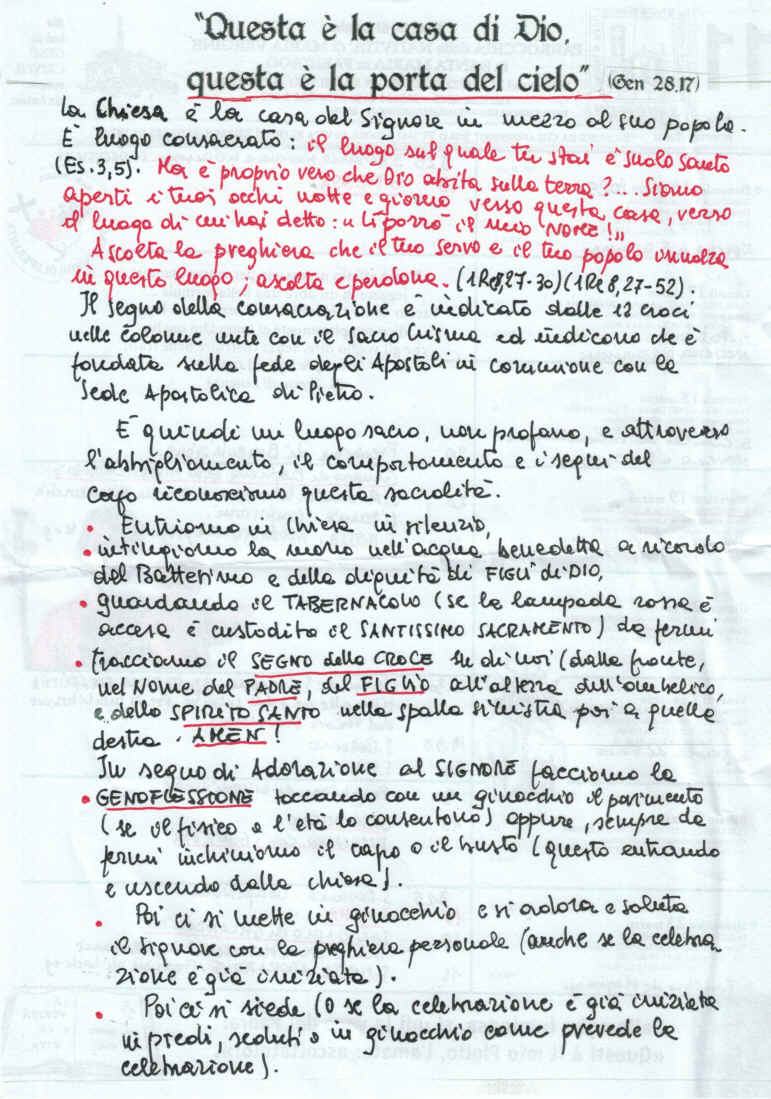 "Questa è la casa di Dio,
questa è la porta del cielo" (Gen 28,17)
La Chiesa è la casa del Signore in mezzo al suo popolo.
È luogo consacrato: il luogo sul quale tu stai è suolo santo
(Es. 3,5). Ma è proprio vero che Dio abita sulla terra?... Siano
aperti i tuoi occhi notte e giorno verso questa casa, verso
il luogo di cui hai detto: "lì porrò il mio NOME!"
Ascolta la preghiera che il tuo servo e il tuo popolo innalza
in questo luogo; ascolta e perdona. (1Re8,27-30)(1Re 8,27-52).
Il segno della consacrazione è indicato dalle 12 croci
nelle colonne unte con il Sacro Crisma ed indicono che è
fondata sulla fede degli Apostoli in comunione con la
Sede Apostolica di Pietro.
È quindi un luogo sacro, non profano, e attraverso
l'abbigliamento, il comportamento e i segni del
corpo riconosciamo questa sacralità.
• Entriamo in Chiesa in silenzio,
• intingiamo la mano nell'acqua benedetta a ricordo
del Battesimo e della dignità di FIGLI di DIO,
• guardando il TABERNACOLO (se la lampada rossa è
accesa è custodito il SANTISSIMO SACRAMENTO) da fermi
• tracciamo il SEGNO della CROCE su di noi (dalla fronte,
nel Nome del PADRE, del FIGLIO all'altezza dell'ombelico,
e dello SPIRITO SANTO nella spalla sinistra poi a quella
destra. AMEN!
In segno di Adorazione al SIGNORE facciamo la
• GENOFLESSIONE toccando con un ginocchio il pavimento
(se il fisico e l'età lo consentono) oppure, sempre da
fermi inchiniamo il capo o il busto (questo entrando
e uscendo dalla chiesa).
• Poi ci si mette in ginocchio e si adora e saluta
il Signore con la preghiera personale (anche se la celebra
zione è già iniziata).
• Poi ci si siede (o se la celebrazione è già iniziata
in piedi, seduti o in ginocchio come prevede la
celebrazione).